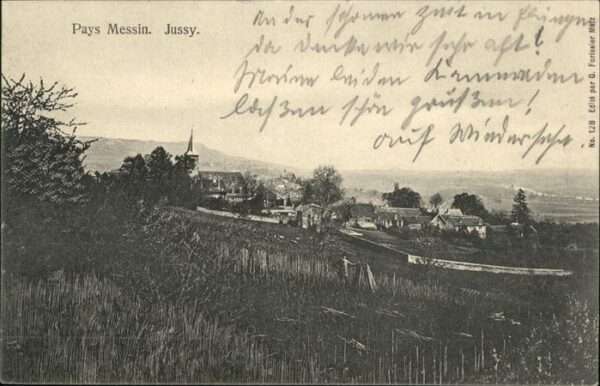 Pays Messin. Jussy.
An der schönen Zeit in
da denken wir sehr oft!
Meine beiden Kameraden
laßen schön grüßen!
auf Wiederseh.
No. 128 Edité par G. Forissier Metz